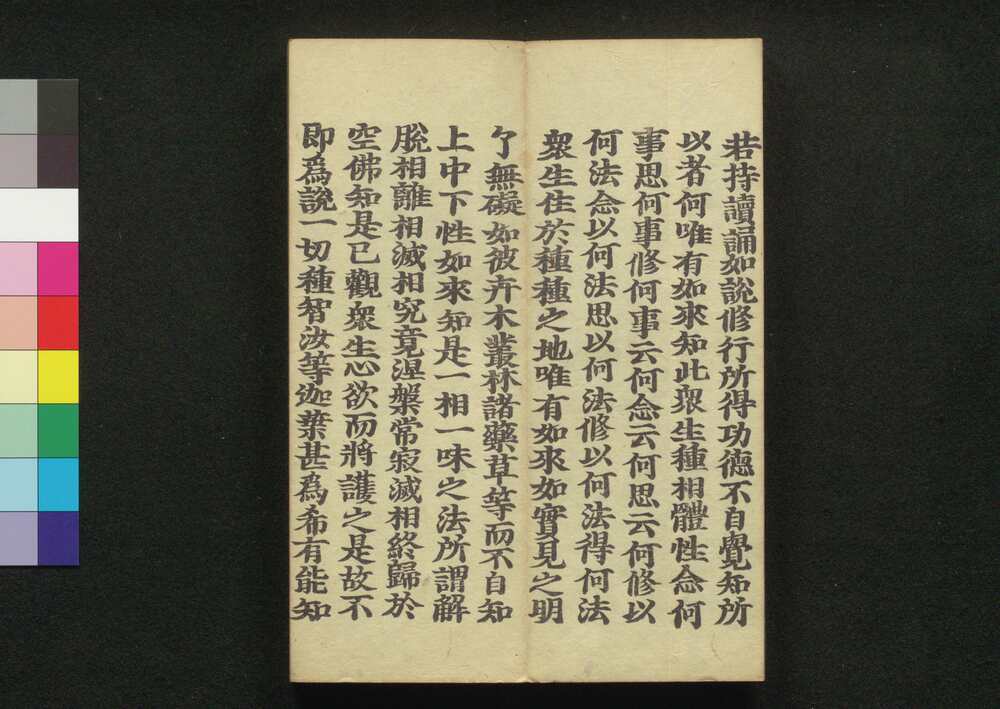 若持讀誦如説修行所得功德不自覺知所
以者何唯有如來知此衆生種相體性念何
事思何事修何事云何念云何思云何修以
何法念以何法思以何法修以何法得何法
衆生住於種種之地唯有如來如實見之明
了無礙如彼卉木叢林諸藥草等而不自知
上中下性如來知是一相一味之法所謂解
脫相離相滅相究竟涅槃常寂滅相終歸於
空佛知是已觀衆生心欲而將護之是故不
即爲說一切種智汝等迦葉甚爲希有能知